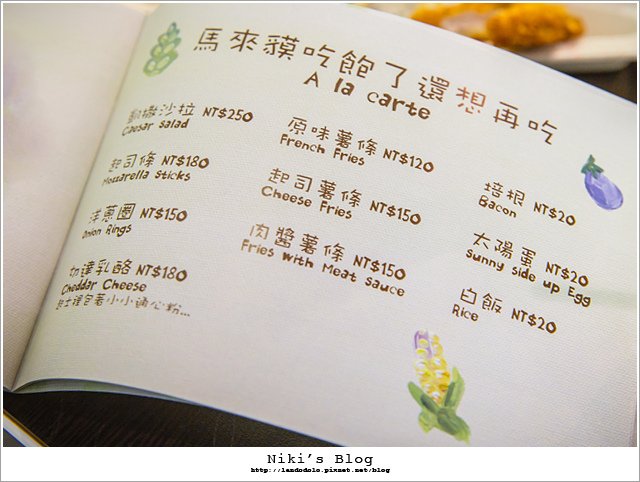 馬來貘吃飽了還想再吃
A la carte
凱撒沙拉 NT$250
Caesar Salad
起司條 NT$180
Mozzarella Sticks
洋蔥圈 NT$150
Onion Rings
切達乳酪 NT$180
Cheddar Cheese
起士裡包著小小通心粉...
原味薯條 NT$120
French Fries
起司薯條 NT$150
Cheese Fries
肉醬薯條 NT$150
Fries with Meat Sauce
培根 NT$20
Bacon
太陽蛋 NT$20
Sunny side up Egg
白飯 NT$20
Rice
Niki's Blog
http://landodolo.pixnet.net/blog